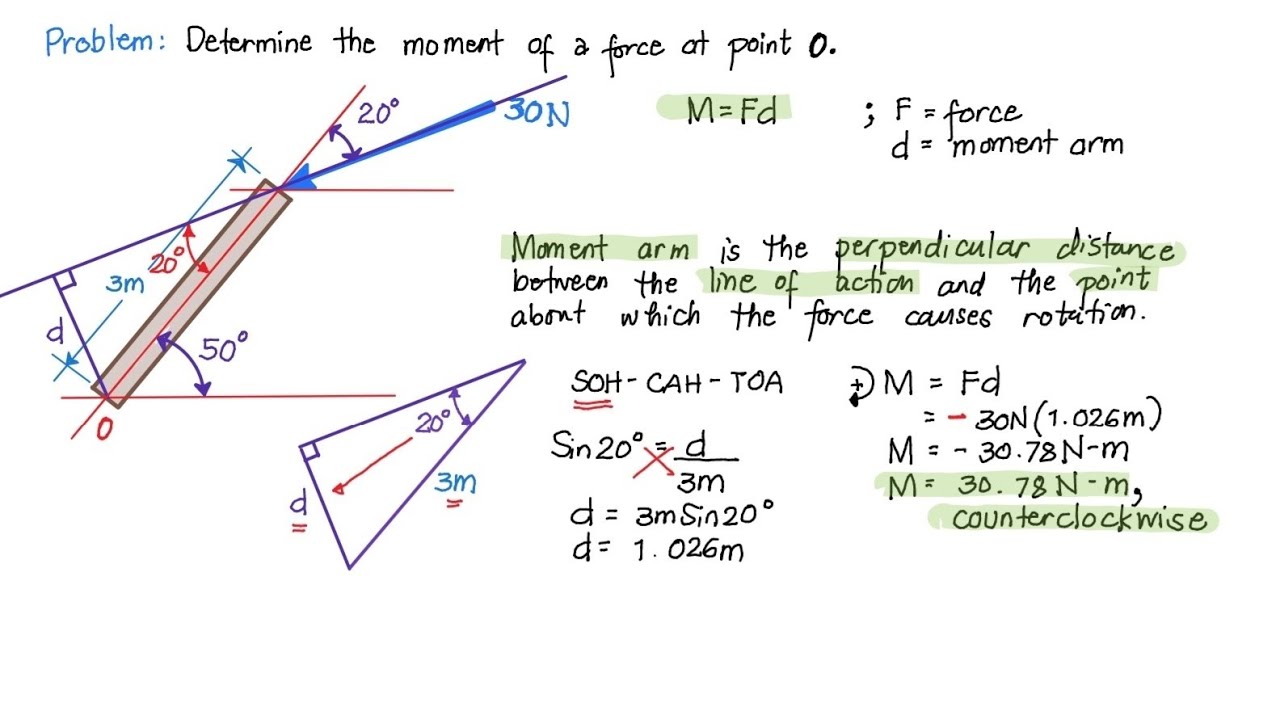 Problem: Determine the moment of a force at point O.
20°
30N
M=Fd
; F = force
d = moment arm
20°
3m
d
50°
O
Moment arm is the perpendicular distance
between the line of action and the point
about which the force causes rotation.
20°
3m
d
SOH-CAH-TOA
Sin20° = d
3m
d = 3mSin20°
d = 1.026m
+ M = Fd
= - 30N(1.026m)
M = - 30.78N-m
M = 30.78N-m,
counterclockwise